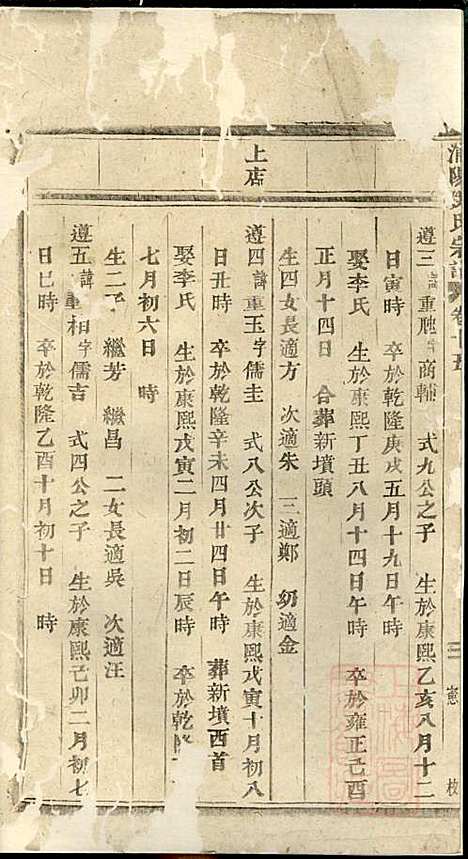 浦陽 氏宗譜 卷十五 三 憲 校
遵三 諱重 字商輔 式九公之子 生於康熙乙亥八月十二
日寅時 卒於乾隆庚戌五月十九日午時
娶李氏 生於康熙丁丑八月十四日午時 卒於雍正己酉
正月十四日 合葬新墳頭
生四女長適方 次適朱 三適鄭 幼適金
上店
遵四諱重玉字儒圭 式八公次子 生於康熙戊寅十月初八
日丑時 卒於乾隆辛未四月廿四日午時 葬新墳西首
娶李氏 生於康熙戊寅二月初二日辰時 卒於乾
七月初六日 時
生二子 繼芳 繼昌 二女長適吳 次適汪
遵五諱重相字儒吉 式四公之子 生於康熙己卯二月初七
日巳時 卒於乾隆乙酉十月初十日 時